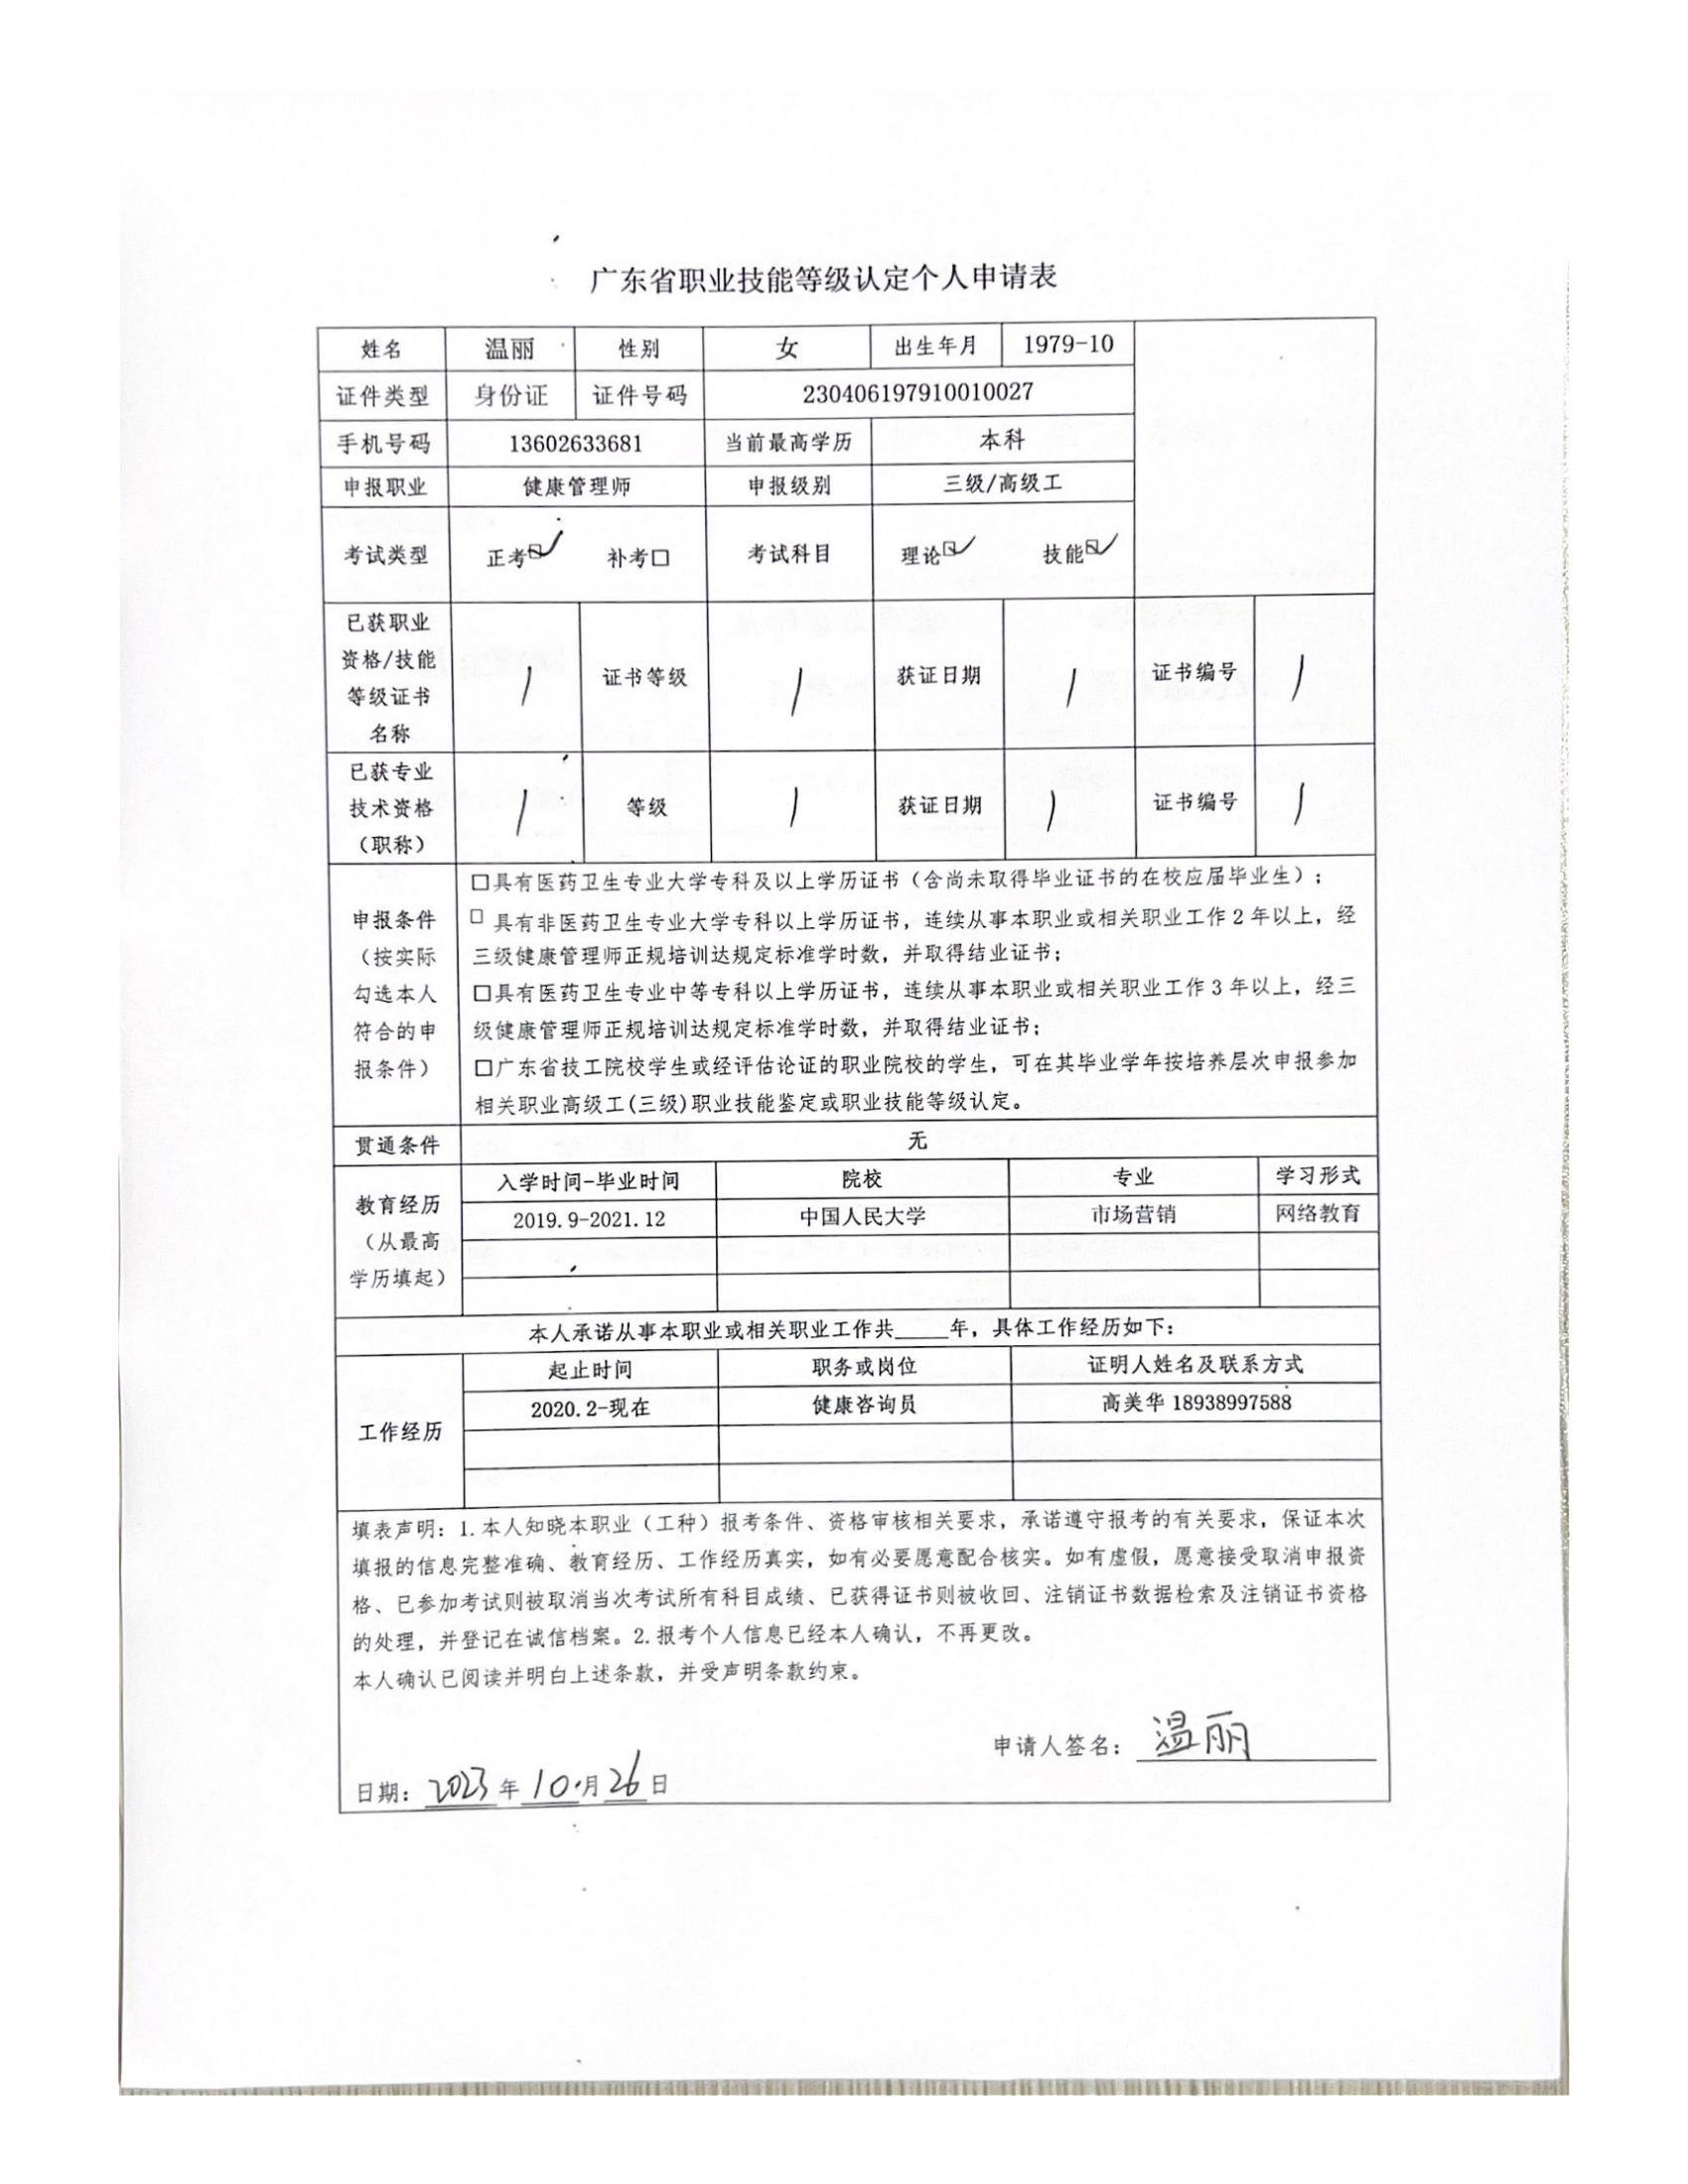 广东省职业技能等级认定个人申请表
姓名 温丽 性别 女 出生年月 1979-10
证件类型 身份证 证件号码 230406197910010027
手机号码 13602633681 当前最高学历 本科
申报职业 健康管理师 申报级别 三级/高级工
考试类型 正考☑ 补考□ 考试科目 理论☑ 技能☑
已获职业
资格/技能
等级证书
名称
/ 证书等级 / 获证日期 / 证书编号 /
已获专业
技术资格
（职称）
/ 等级 / 获证日期 / 证书编号 /
申报条件
（按实际
勾选本人
符合的申
报条件）
□具有医药卫生专业大学专科及以上学历证书（含尚未取得毕业证书的在校应届毕业生）；
□ 具有非医药卫生专业大学专科以上学历证书，连续从事本职业或相关职业工作 2 年以上，经
三级健康管理师正规培训达规定标准学时数，并取得结业证书；
□具有医药卫生专业中等专科以上学历证书，连续从事本职业或相关职业工作 3 年以上，经三
级健康管理师正规培训达规定标准学时数，并取得结业证书；
□广东省技工院校学生或经评估论证的职业院校的学生，可在其毕业学年按培养层次申报参加
相关职业高级工(三级)职业技能鉴定或职业技能等级认定。
贯通条件 无
教育经历
（从最高
学历填起）
入学时间-毕业时间 院校 专业 学习形式
2019.9-2021.12 中国人民大学 市场营销 网络教育
本人承诺从事本职业或相关职业工作共____年，具体工作经历如下：
工作经历
起止时间 职务或岗位 证明人姓名及联系方式
2020.2-现在 健康咨询员 高美华 18938997588
填表声明：1.本人知晓本职业（工种）报考条件、资格审核相关要求，承诺遵守报考的有关要求，保证本次
填报的信息完整准确、教育经历、工作经历真实，如有必要愿意配合核实。如有虚假，愿意接受取消申报资
格、已参加考试则被取消当次考试所有科目成绩、已获得证书则被收回、注销证书数据检索及注销证书资格
的处理，并登记在诚信档案。2.报考个人信息已经本人确认，不再更改。
本人确认已阅读并明白上述条款，并受声明条款约束。
申请人签名：温丽
日期：2023 年 10 月 26 日